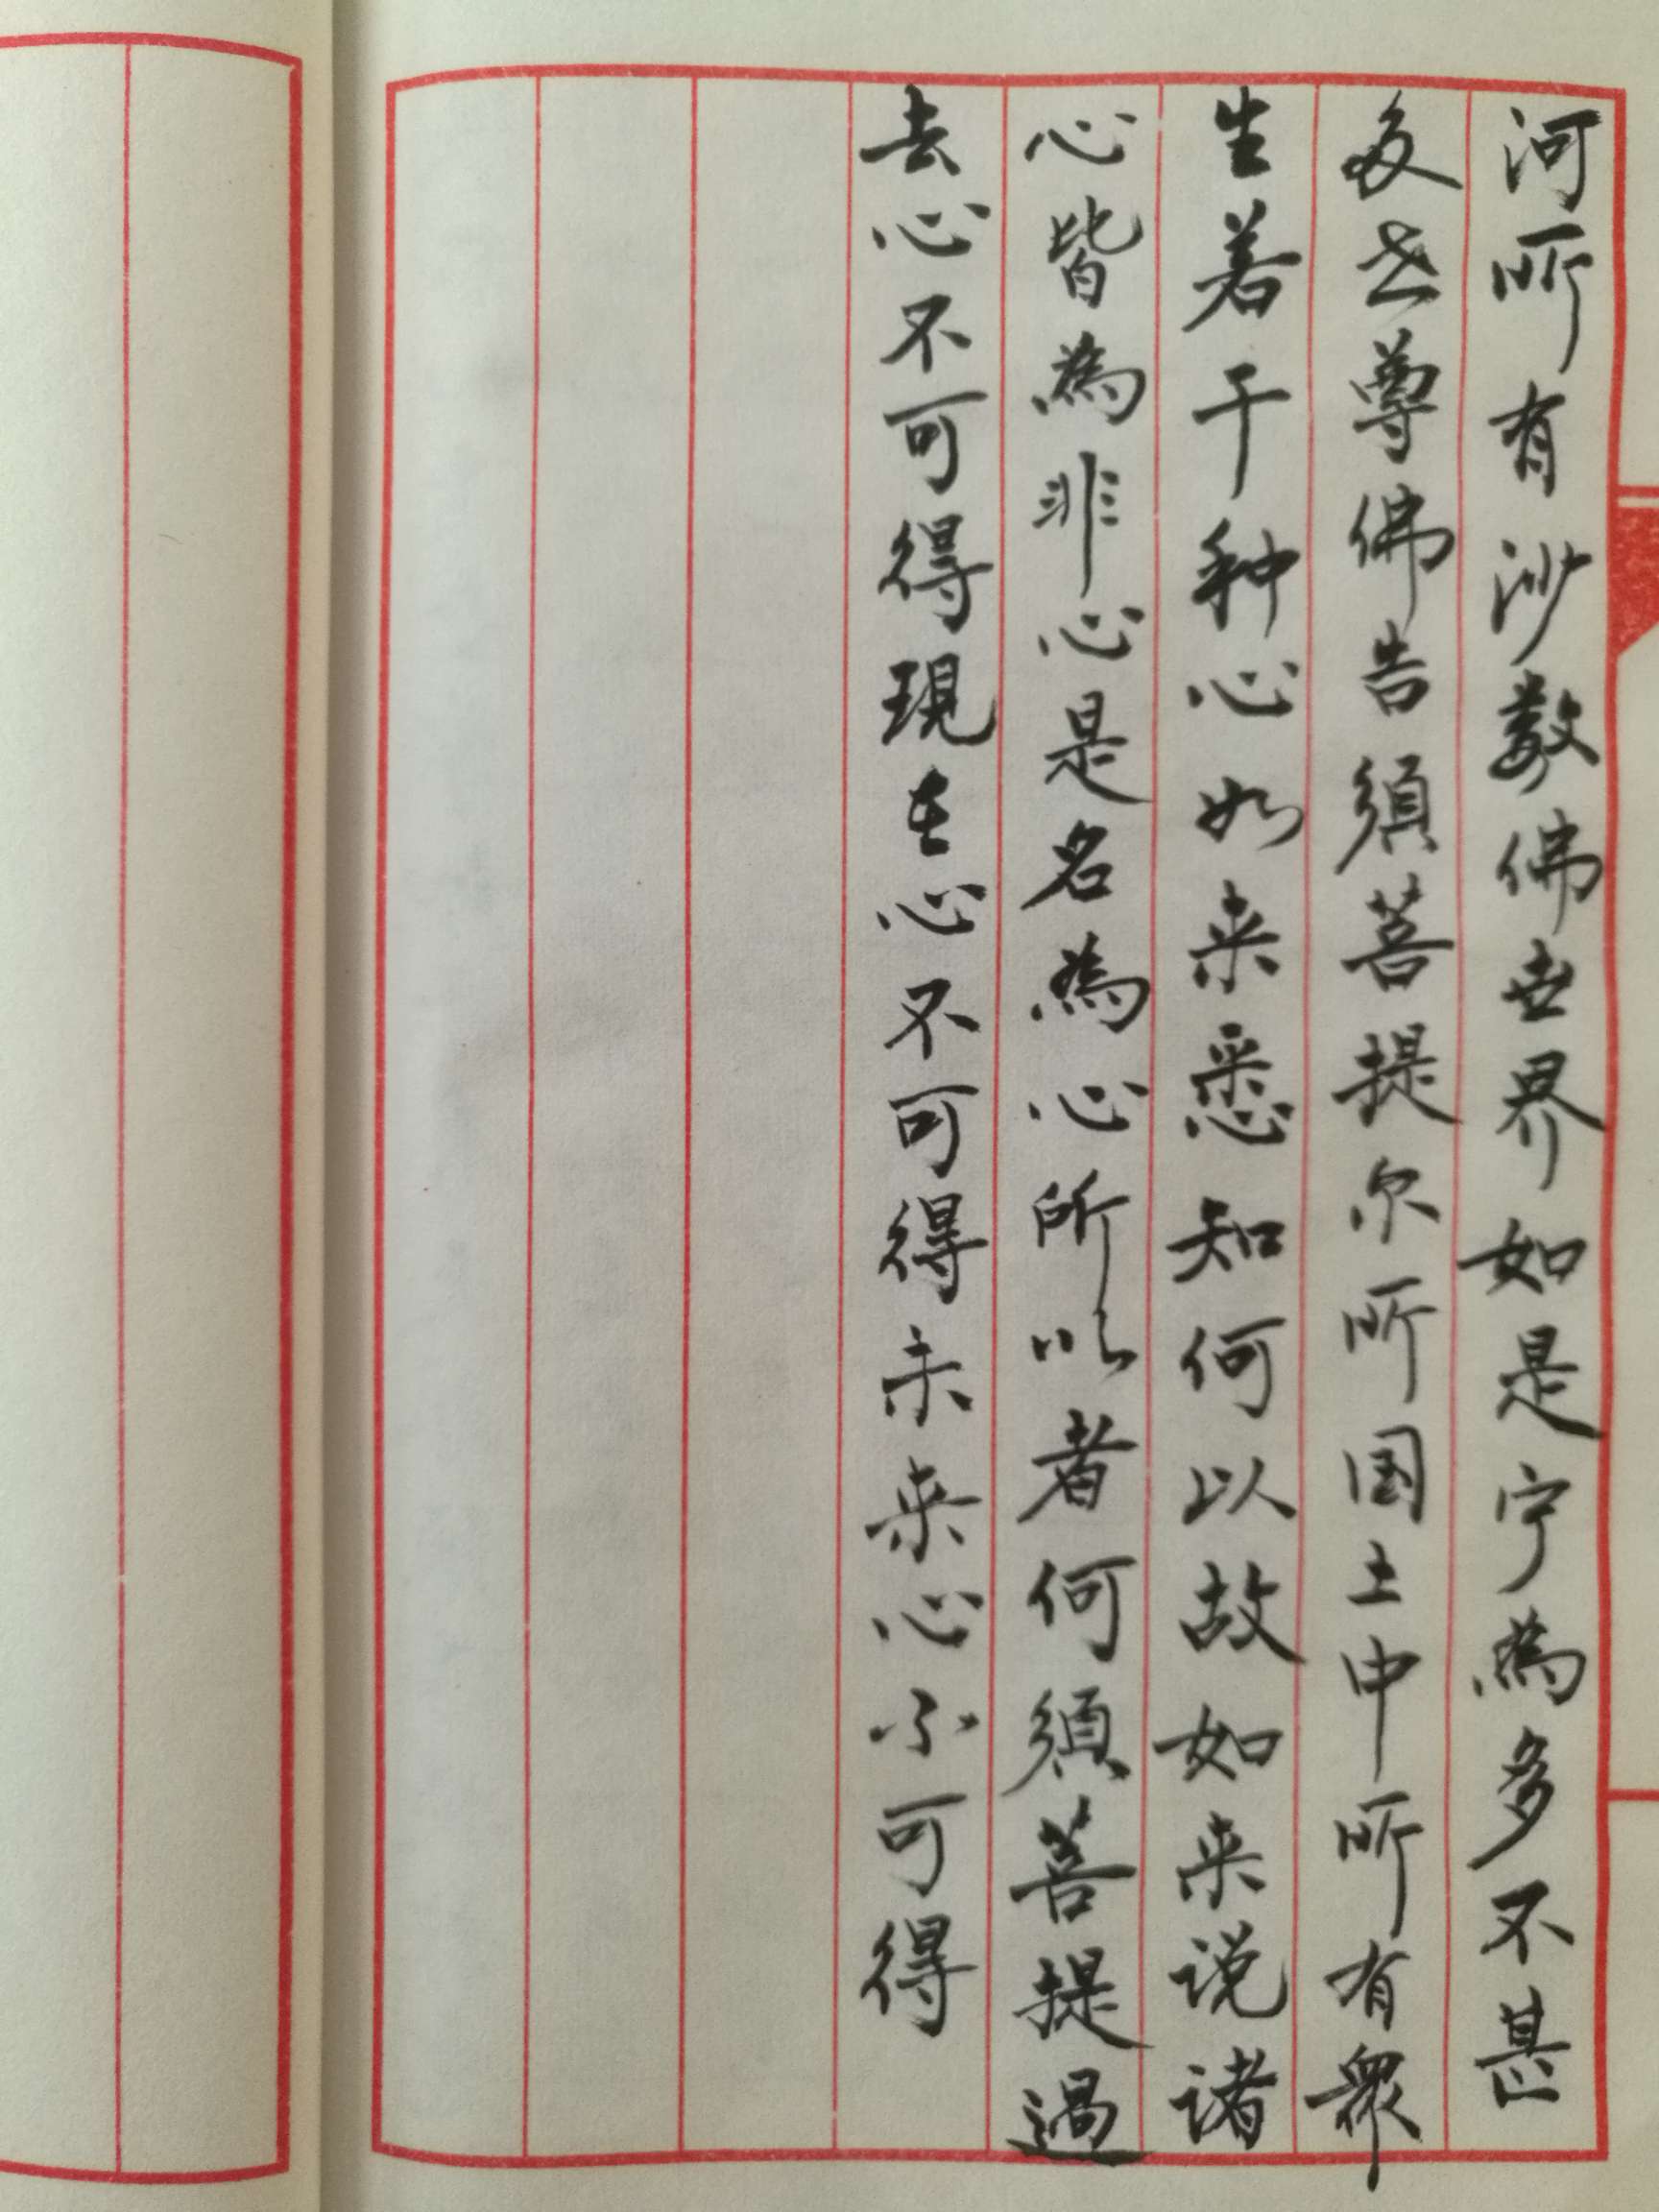 河所有沙數佛世界如是宁為多不甚
多世尊佛告須菩提尔所国土中所有衆
生若干种心如来悉知何以故如来说诸
心皆為非心是名為心所以者何須菩提過
去心不可得現在心不可得未来心不可得